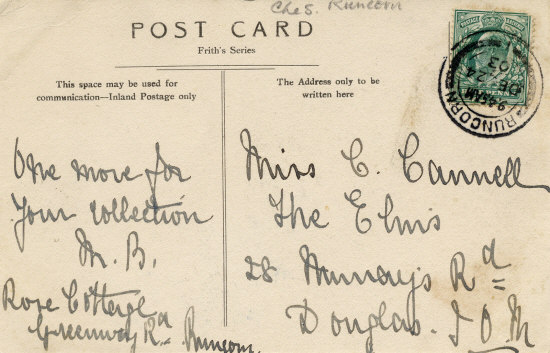 Ches. Runcorn
POST CARD
Frith's Series
This space may be used for
communication—Inland Postage only
The Address only to be
written here
RUNCORN
9.45AM
DE 24
03
One more for
your collection
M. B.
Rose Cottage
Greenway Rd
Runcorn.
Miss C. Cannell
The Elms
28 Murrays Rd
Douglas. I O M